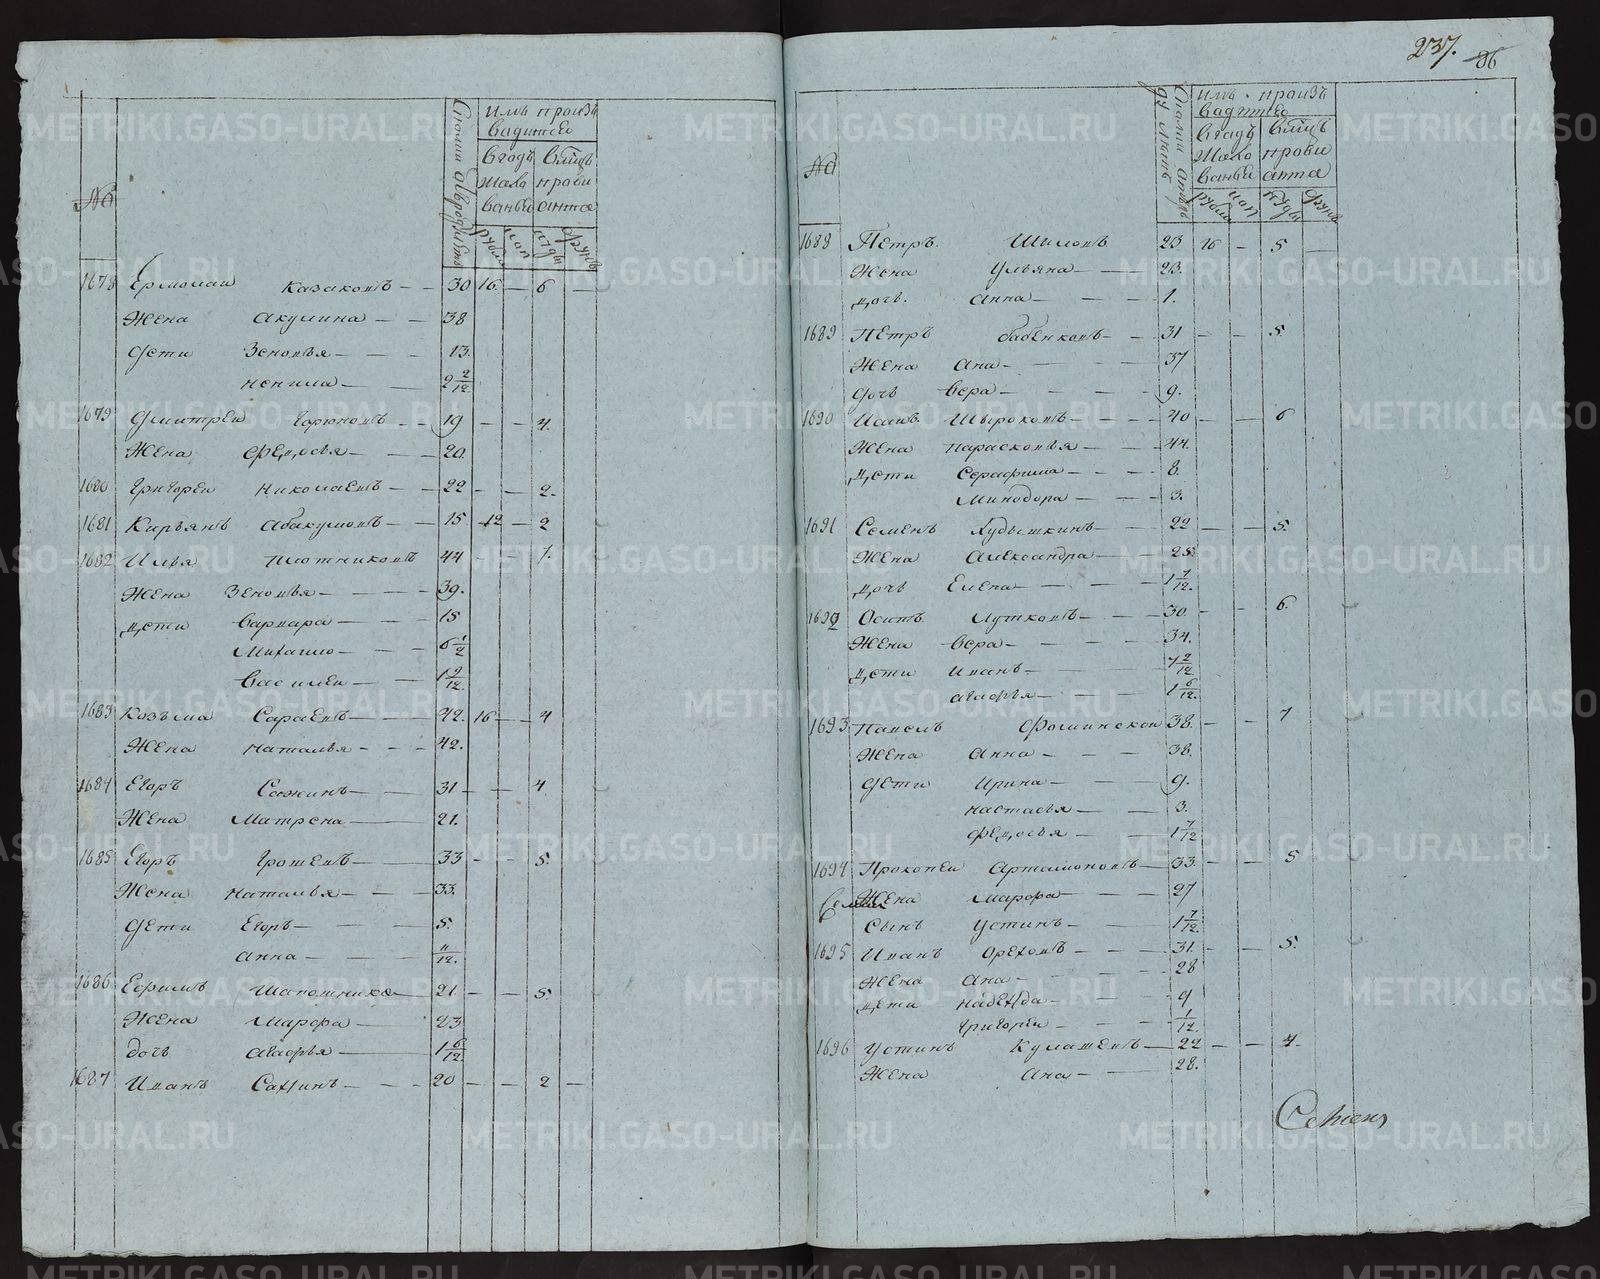 237. 86
№
Сколки отъ роду летъ
имъ произъ
вадитсе
Вгодъ Вмцъ
Жало прови
ванье анта
рубли коп пуды фунъ
1678 Ермолаи Казаковъ — — 30 16 — 6 —
Жена акулина — — 38
дети Зеновья — — — 13.
ненила — — 2 2/12
1679 Дмитреи Горюновъ — — 19 — — 4.
Жена Федосья — — 20.
1680 Григореи Николаевъ — — 22 — — 2.
1681 Кирьянъ Абакумовъ — — 15 12 — 2
1682 Илья Плотниковъ 44 — — 7.
Жена Зеновья — — — 39.
дети Варвара — — — 15
Михаило — — — 6 1/2
Василеи — — 1 9/12
1683 Козьма Сараевъ — — 42. 16 — 4
Жена Наталья — — — 42.
1684 Егоръ Сажинъ — — 31 — — 4
Жена Матрена — — 21.
1685 Егоръ Грошевъ — — 33 — — 5.
Жена Наталья — — — 33.
дети Егоръ — — — 5.
анна — — — 11/12.
1686 Ефимъ Шапошника — 21. — — 5.
Жена Марфа — — 23
дочь агафья — — 1 6/12
1687 Иванъ Сахинъ — — — 20 — — 2 —
№
Сколки отъ роду летъ
имъ произъ
вадитсе
Вгодъ Вмцъ
Жало прови
ванье анта
рубли коп пуды фунъ
1688 Петръ Шиловъ 23 16 — 5 —
Жена Ульяна — — 23.
дочь. Анна — — — 1.
1689 Петръ бабенковъ — — 31 — — 5.
Жена Ана — — — — 37
дочь Вера — — — — 9.
1690 Иванъ Шыроковъ — — — 40 — — 6
Жена парасковья — — — 44.
Дети Серафима — — — 8.
Минодора — — — 3.
1691 Семенъ Худышкинъ — — 22 — — 5.
Жена Александра — — 25.
дочь Елена — — — 1 7/12.
1692 Осипъ Лутковъ — — — 30 — — 6.
Жена Вера — — — 34.
дети иванъ — — — 7 2/12
агафья — — — 1 6/12.
1693. Павелъ Фоминскои 38. — — 7
Жена Анна — — — 38.
дети Ирина — — — 9.
настасья — — 3.
Федосья — — 1 7/12
1694 Прокопеи Артамоновъ — 33. — — 5
Жена Марфа — — — 27
Сынъ Устинъ — — — 1 7/12
1695 Иванъ Ореховъ — — — 31. — — 5.
Жена Ана — — — 28
дети Надежда — — — 9
Григореи — — — 1/12.
1696 Устинъ Кулашевъ — 22 — — 4.
Жена Ана — — 28.
METRIKI.GASO-URAL.RU